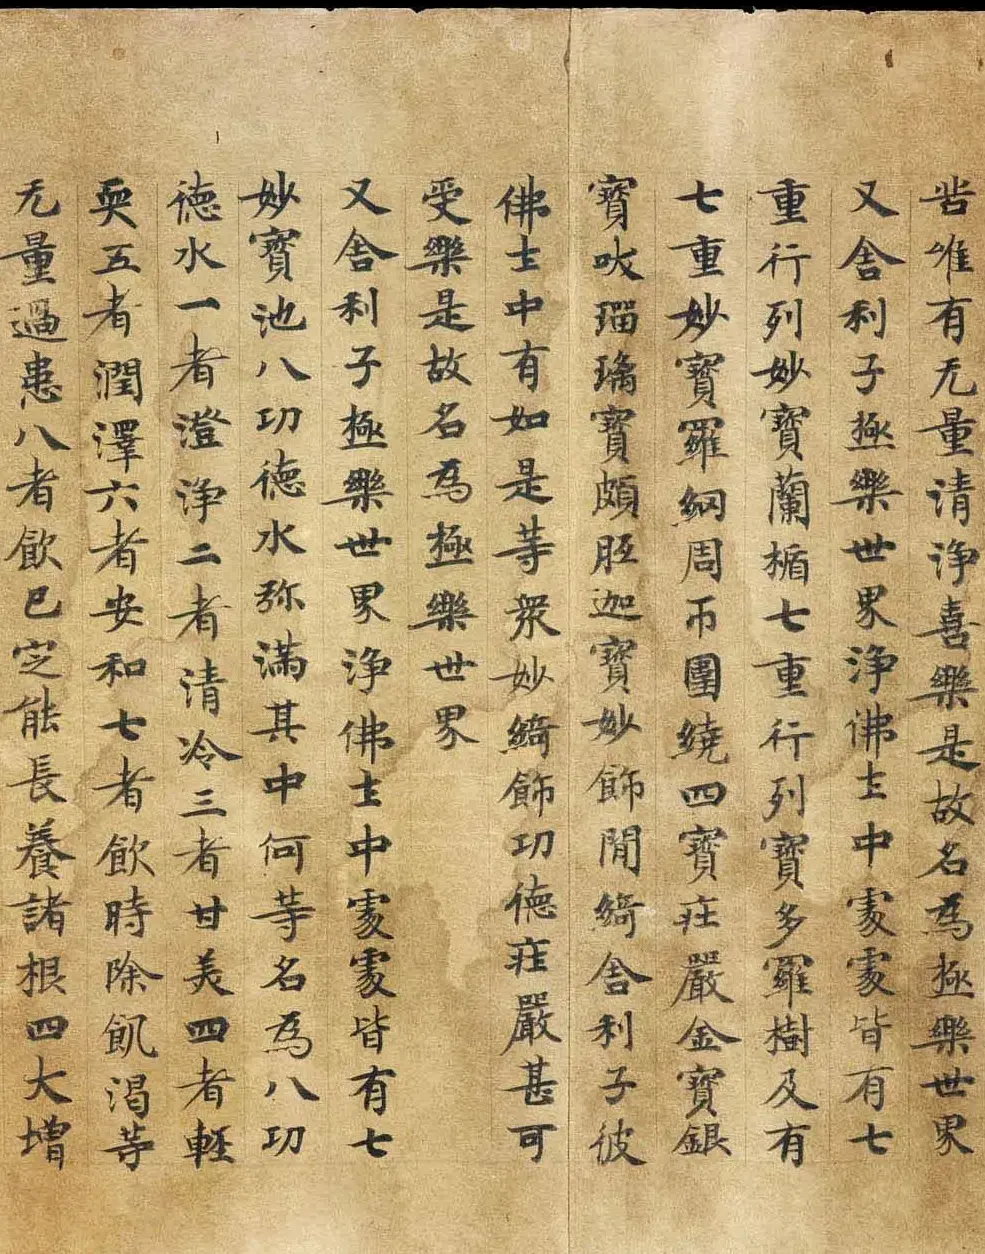 苦唯有无量清淨喜樂是故名為極樂世界
又舍利子極樂世界淨佛土中處處皆有七
重行列妙寶蘭楯七重行列寶多羅樹及有
七重妙寶羅網周帀圍繞四寶莊嚴金寶銀
寶吠瑠璃寶頗胝迦寶妙飾閒綺舍利子彼
佛土中有如是等衆妙綺飾功德莊嚴甚可
受樂是故名為極樂世界
又舍利子極樂世界淨佛土中處處皆有七
妙寶池八功德水弥滿其中何等名為八功
德水一者澄淨二者清冷三者甘美四者輕
耎五者潤澤六者安和七者飲時除飢渴等
无量過患八者飲已定能長養諸根四大增